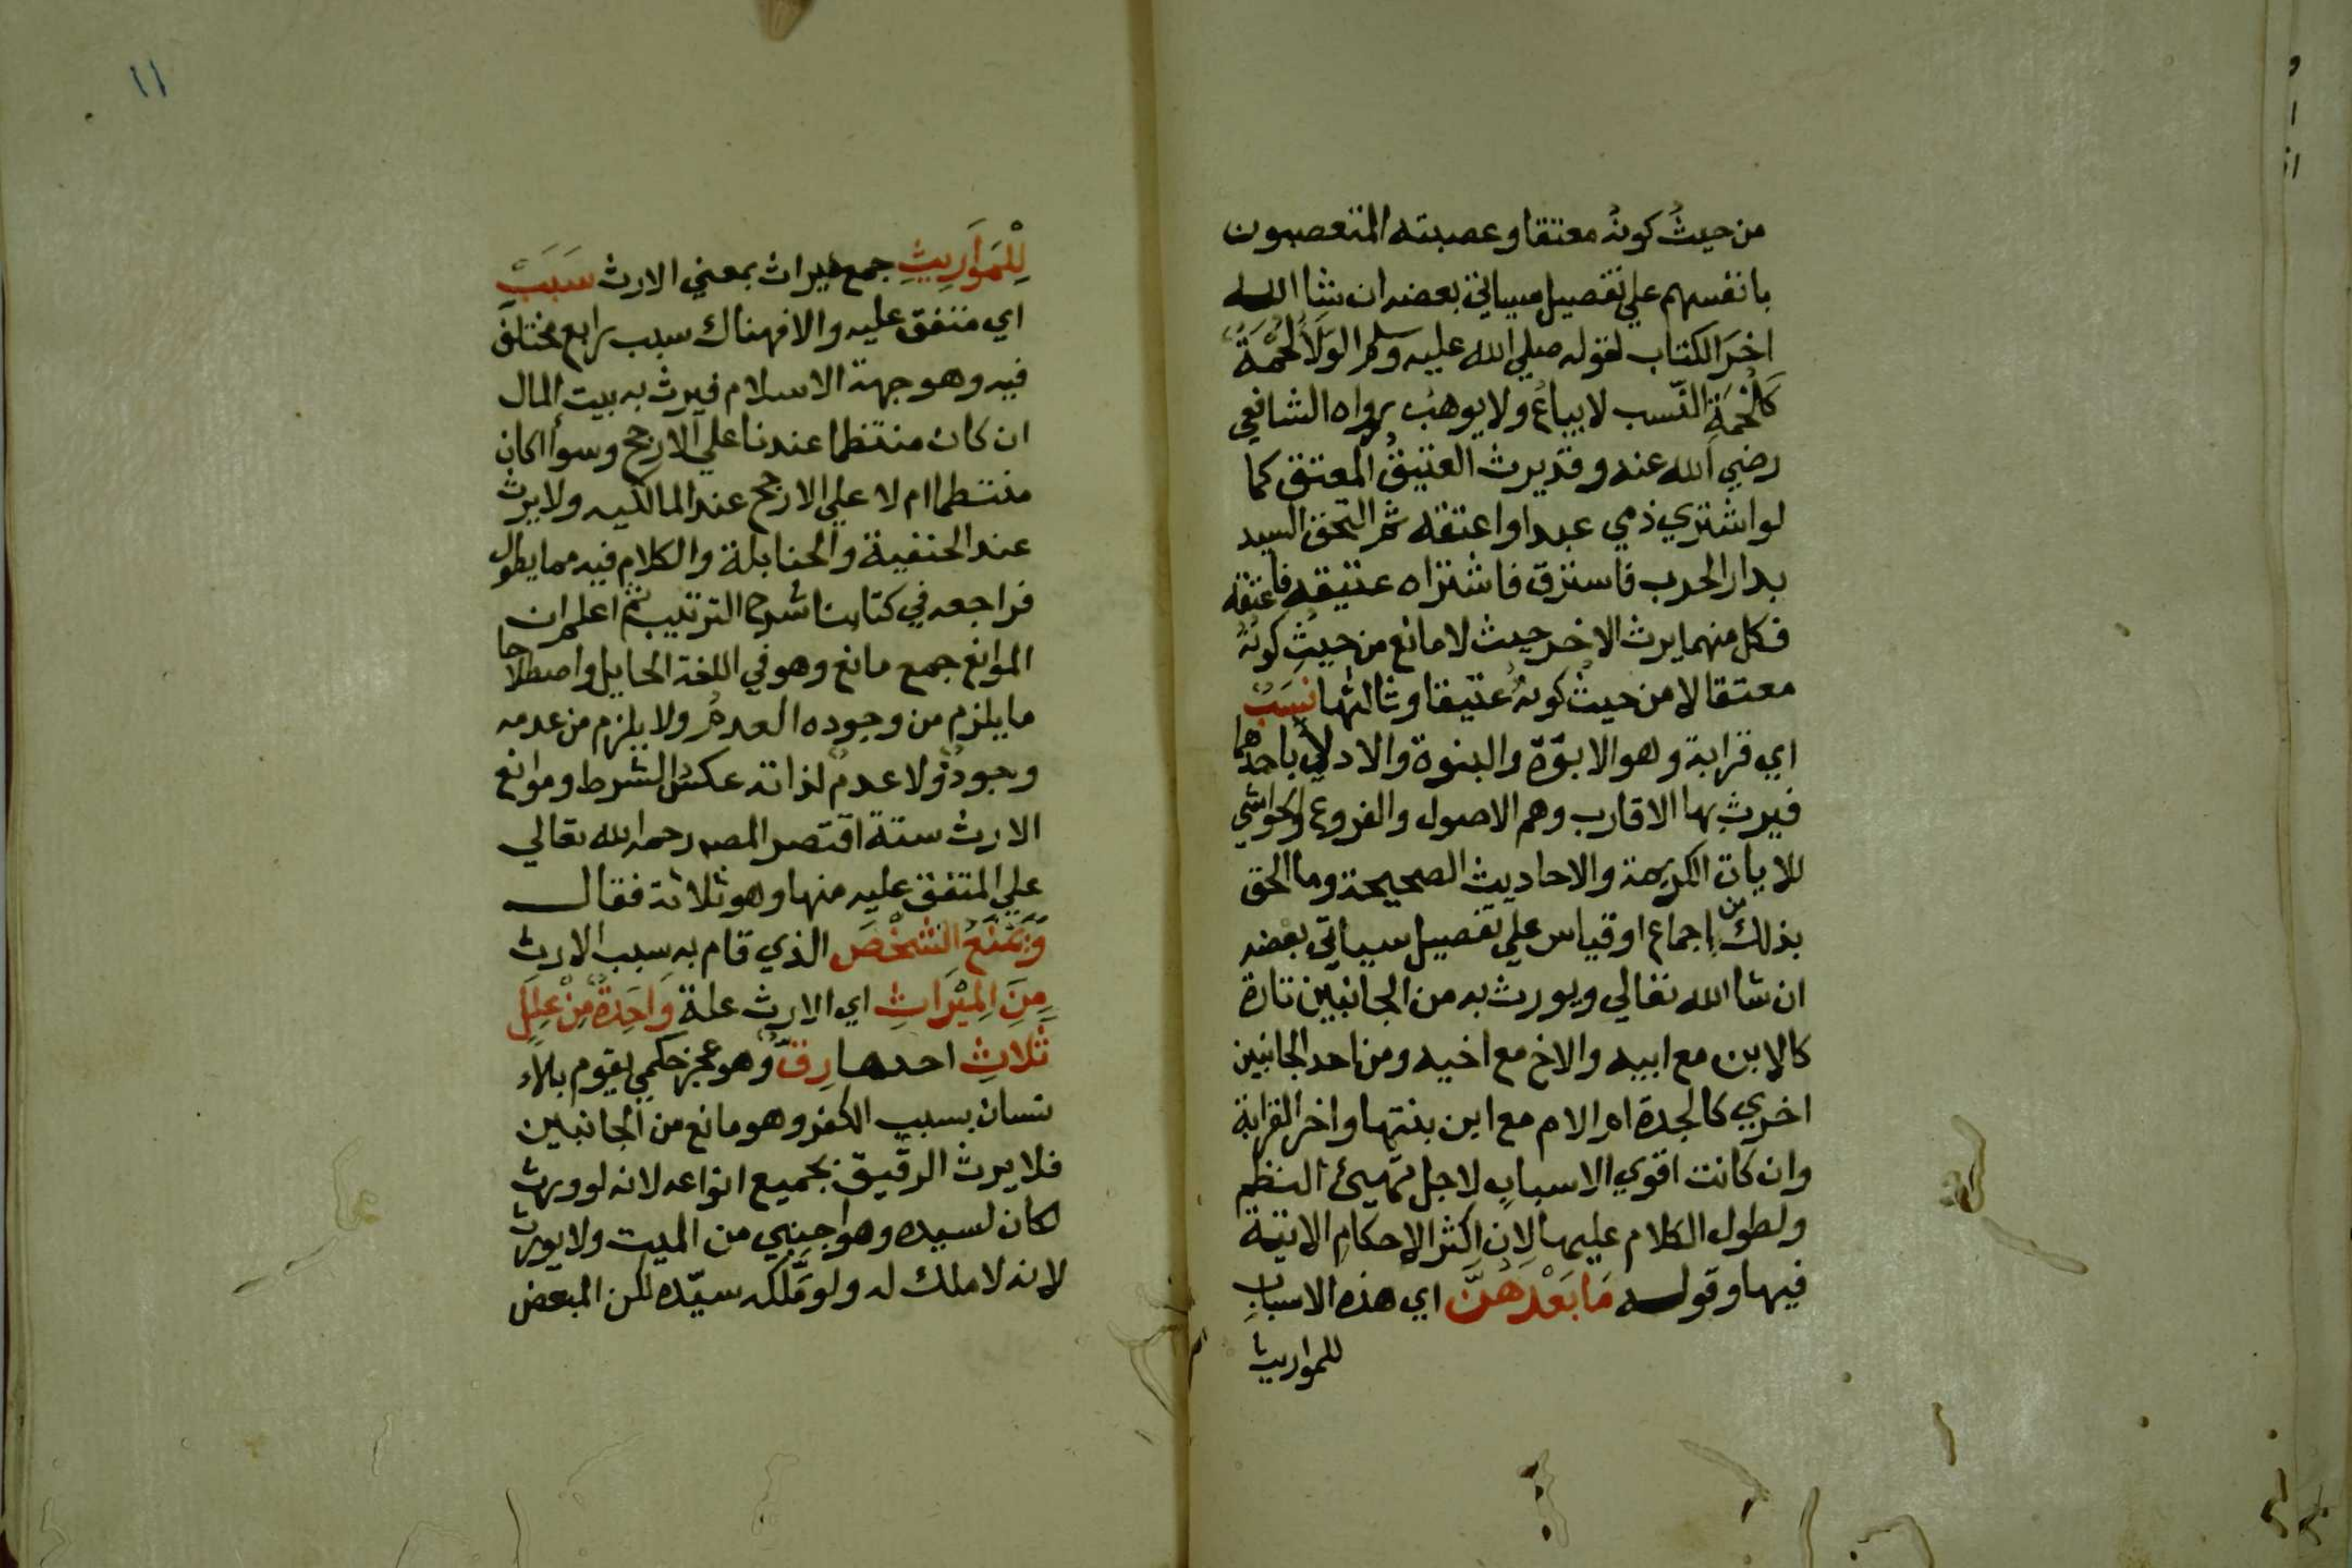 من حيثُ كونهُ معتقا وعصبته المتعصبون
بانفسهم علي تفصيل سياتي بعضه ان شا الله
اخرَ الكتاب لقوله صلي الله عليه وسلم الوَلَاُ لُحْمَةٌ
كَلُحْمَةِ النّسب لا يباعُ ولا يوهبُ رواه الشافعي
رضي الله عنه وقد يرث العتيقُ المعتق كما
لو اشتري ذمي عبدا واعتقه ثم التحق السيد
بدار الحرب فاسترق فاشتراه عتيقه فاعتقه
فكل منهما يرث الاخر حيث لا مانع من حيثِ كونهُ
معتقا لا من حيثُ كونهُ عتيقا وثالثها نَسَبٌ
اي قرابة وهو الابوّة والبنوة والادلاُ باحدهما
فيرث بها الاقارب وهم الاصول والفروع والحواشي
للايات الكريمة والاحاديث الصحيحة وما الحق
بذلك من اجماع او قياس علي تفصيل سياتي بعضه
ان شا الله تعالي ويورث به من الجانبين تارة
كالابن مع ابيه والاخ مع اخيه ومن احد الجانبين
اخري كالجدة ام الام مع ابن بنتها واخر القرابة
وان كانت اقوي الاسباب لاجل تهيئ النظم
ولطول الكلام عليها لان اكثر الاحكام الاتية
فيها وقوله مَا بَعْدَهُنَّ اي هذه الاسباب
للمواريث
١١
لِلْمَوَارِيثِ جمع ميراث بمعني الارث سَبَبْ
اي متفق عليه والا فهناك سبب رابع مختلف
فيه وهو جهة الاسلام فيرث به بيت المال
ان كان منتظما عندنا علي الارجح وسوأ كان
منتظما ام لا علي الارجح عند المالكيه ولا يرث
عند الحنفية والحنابلة والكلام فيه مما يطول
فراجعه في كتابنا شرح الترتيب ثم اعلم ان
الموانع جمع مانع وهو في اللغة الحايل واصطلاحا
ما يلزم من وجوده العدمُ ولا يلزم من عدمه
وجودٌ ولا عدمٌ لذاته عكسُ الشرط وموانع
الارث ستة اقتصر المصه رحمه الله تعالي
علي المتفق عليه منها وهو ثلاثة فقال
وَيَمْنَعُ الشَّخْصَ الذي قام به سبب الارث
مِنَ المِيْرَاثِ اي الارث علة وَاحِدَةٌ مِنْ عِلَلٍ
ثَلاثِ احدها رِقٌّ وهو عجز حكمي يقوم بالا
نسان بسبب الكفر وهو مانع من الجانبين
فلا يرث الرقيق بجميع انواعه لانه لو ورث
لكان لسيده وهو اجنبي من الميت ولا يورث
لانه لا ملك له ولو مَلّكه سيّده لكن المبعض